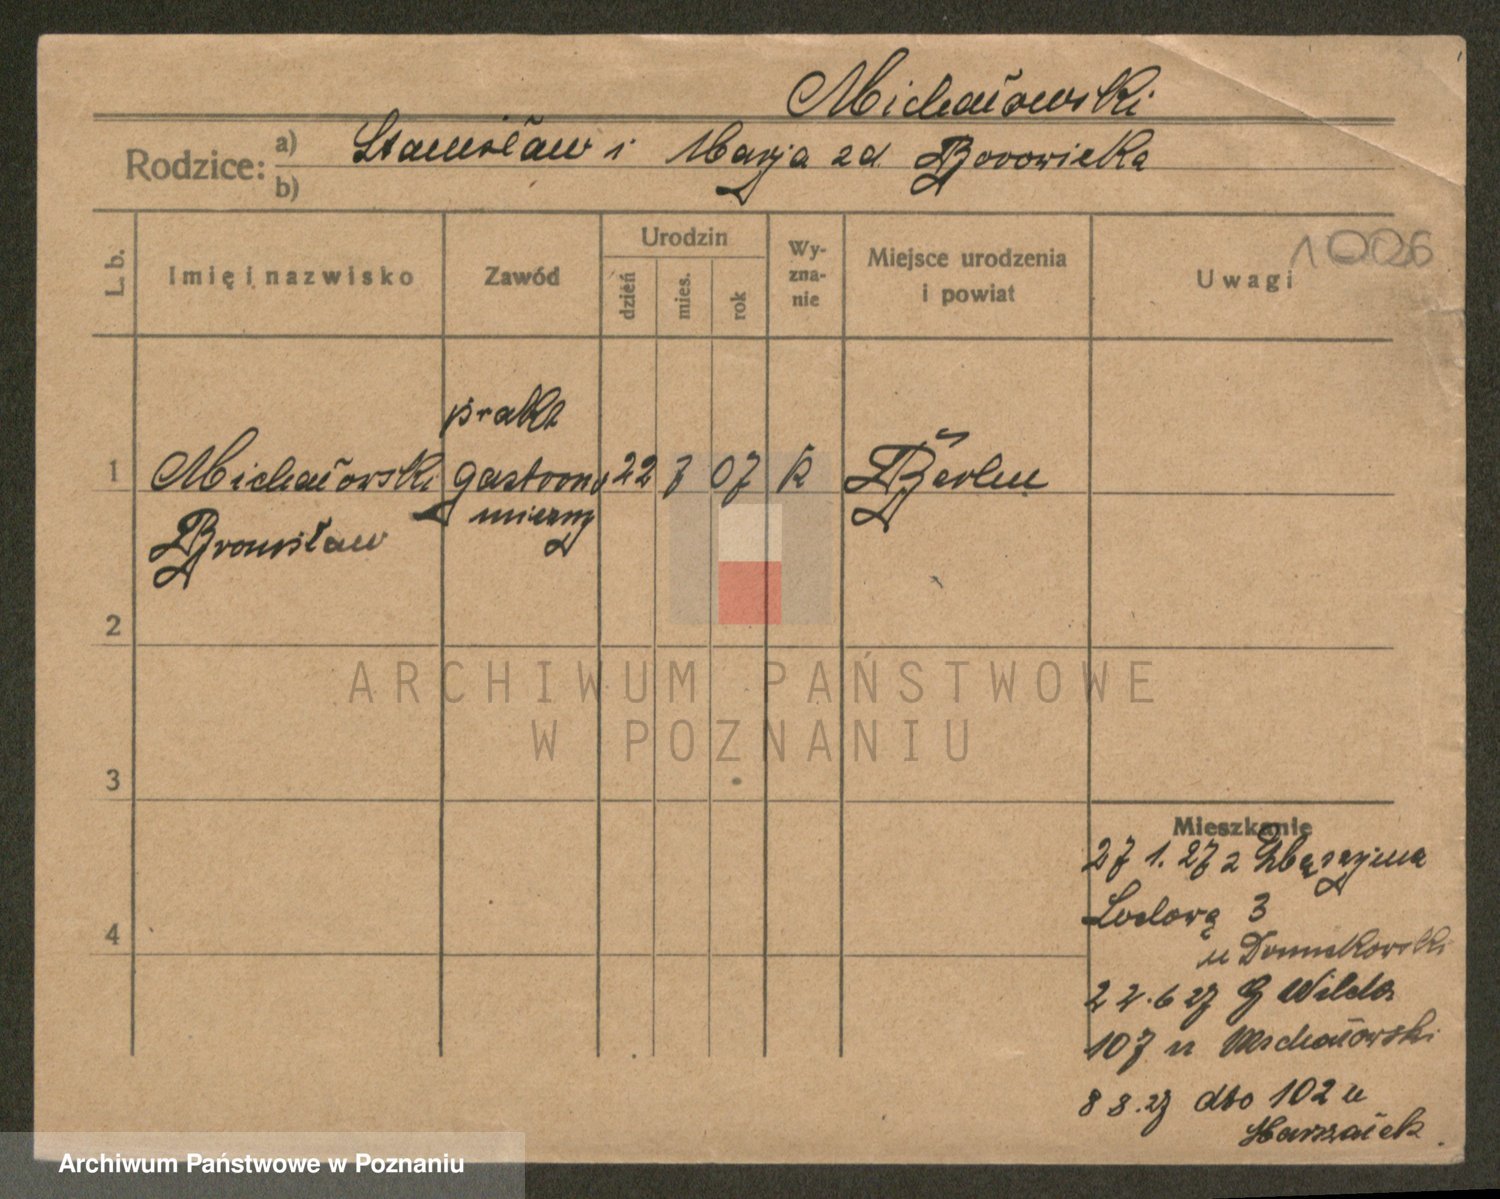 Michałowski
Rodzice: a) Stanisław i Marja zd Borowicka
b)
L. b. Imię i nazwisko Zawód Urodzin dzień mies. rok Wy-zna-nie Miejsce urodzenia i powiat Uwagi 1006
prakt
1 Michałowski gastrono 22 7 07 k Berlin
miczny
Bronisław
2
3
4
Mieszkanie
27 1. 27 z Zbąszynia
Lodową 3
u
22.6 27 G Wilda
107 u Michałowski
8 8.27 dto 102 u
ARCHIWUM PAŃSTWOWE
W POZNANIU
Archiwum Państwowe w Poznaniu